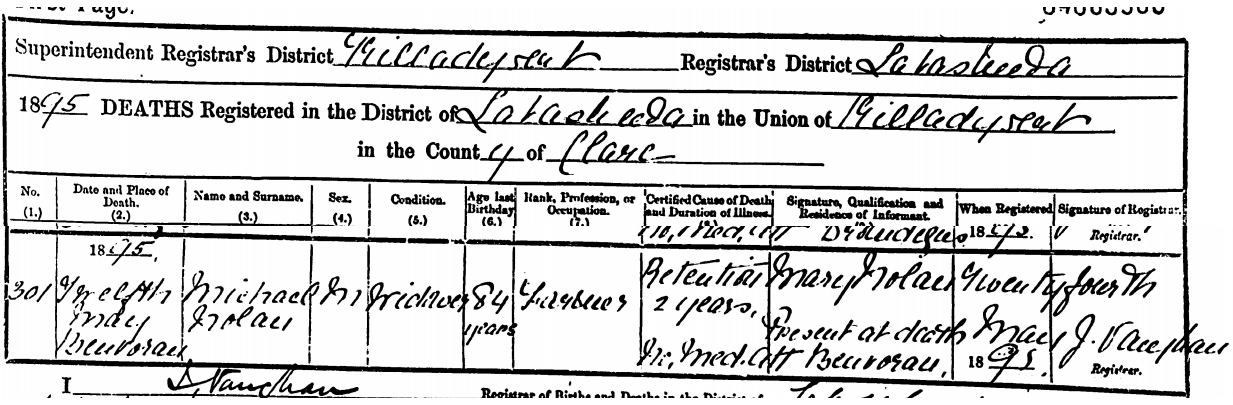 First Page.
Superintendent Registrar's District Killadysert Registrar's District Labasheeda
1895 DEATHS Registered in the District of Labasheeda in the Union of Killadysert
in the County of Clare
No. (1.) Date and Place of Death. (2.) Name and Surname. (3.) Sex. (4.) Condition. (5.) Age last Birthday (6.) Rank, Profession, or Occupation. (7.) Certified Cause of Death and Duration of Illness. Signature, Qualification and Residence of Informant. When Registered Signature of Registrar.
18 Registrar.
1895.
301 Twelfth Michael M Widower 84 Farmer Retention Mary Nolan Twenty fourth
May Nolan years 2 years, Present at death May J. Vaughan
Benvoran No Med. Att Benvoran, 1895. Registrar.
I J. Vaughan Registrar of Births and Deaths in the District of